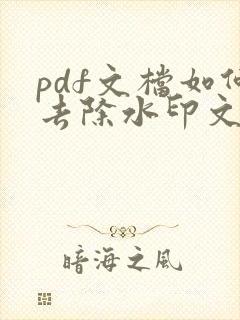 pdf文檔如何
去除水印文
暗海之风